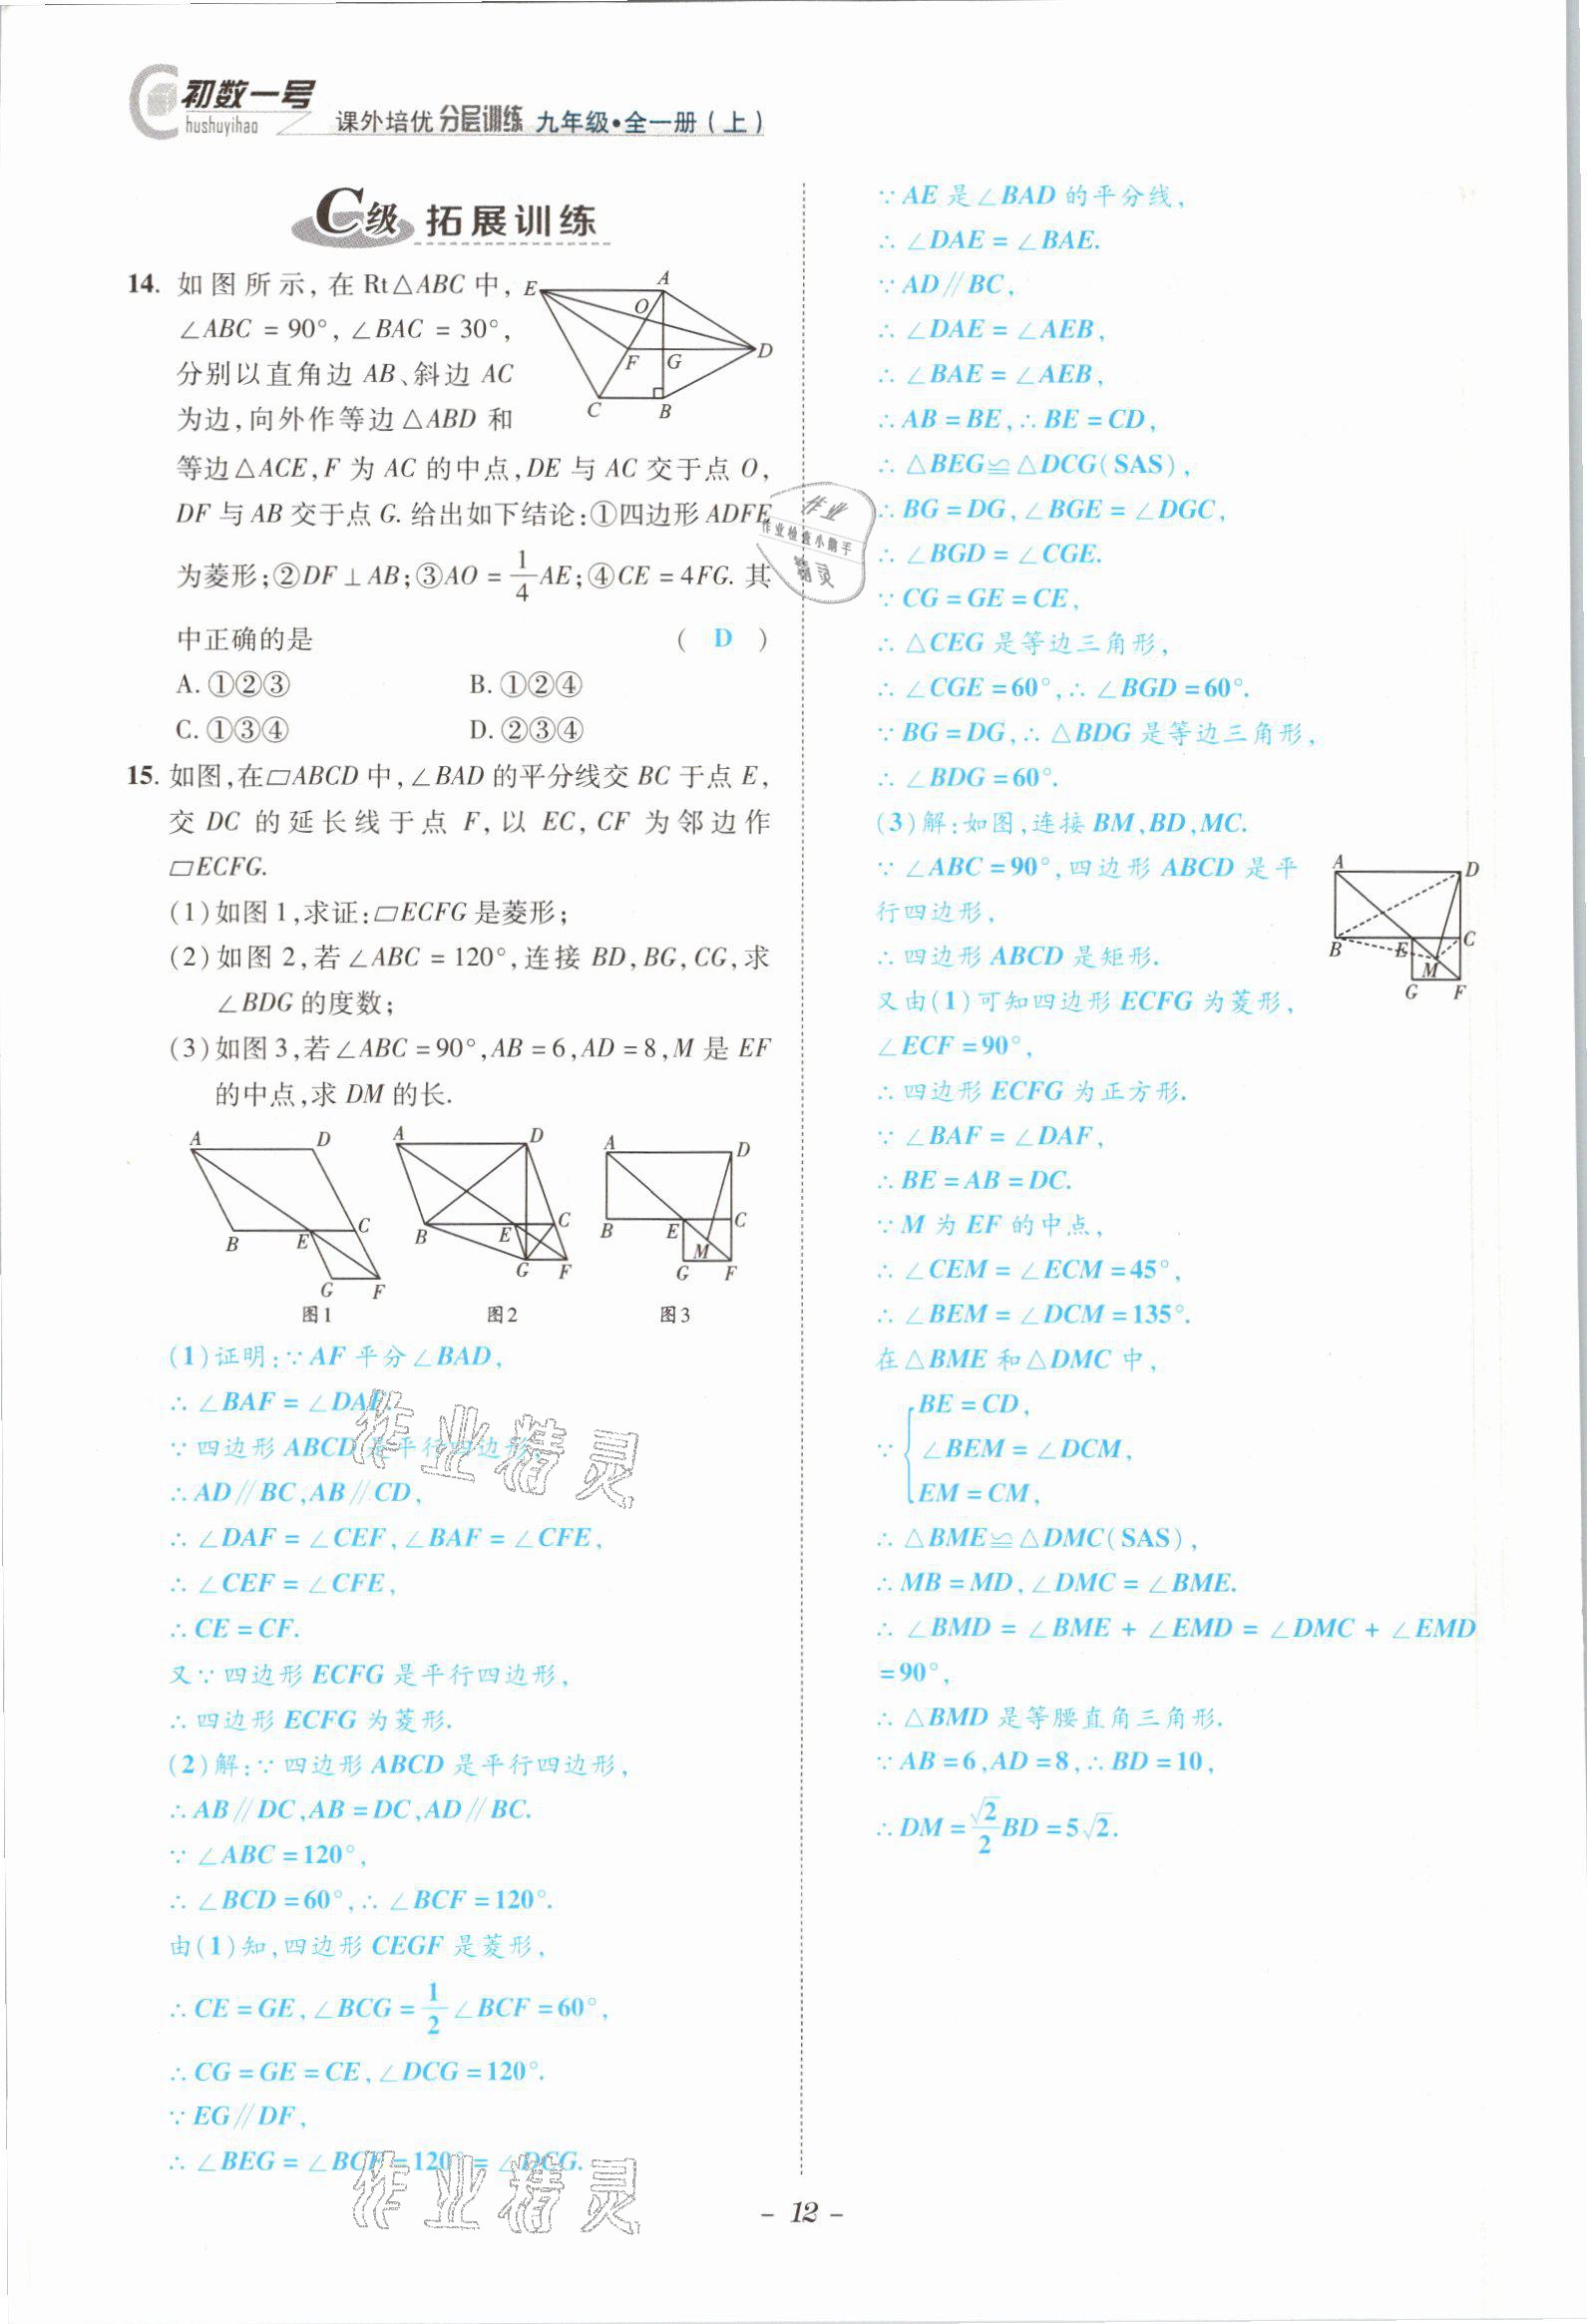 初数一号
hushuyihao
课外培优 分层训练 九年级·全一册(上)
C级 拓展训练
14. 如图所示,在Rt△ABC中,
∠ABC = 90°,∠BAC = 30°,
分别以直角边 AB、斜边 AC
为边,向外作等边△ABD 和
等边△ACE,F 为 AC 的中点,DE 与 AC 交于点 O,
DF 与 AB 交于点 G. 给出如下结论:①四边形 ADFE
为菱形;②DF⊥AB;③AO = 1/4 AE;④CE = 4FG. 其
中正确的是 ( D )
A. ①②③ B. ①②④
C. ①③④ D. ②③④
E A O F G D C B
15. 如图,在▱ABCD 中,∠BAD 的平分线交 BC 于点 E,
交 DC 的延长线于点 F,以 EC,CF 为邻边作
▱ECFG.
(1)如图1,求证:▱ECFG 是菱形;
(2)如图2,若∠ABC = 120°,连接 BD,BG,CG,求
∠BDG 的度数;
(3)如图3,若∠ABC = 90°,AB = 6,AD = 8,M 是 EF
的中点,求 DM 的长.
A D B E C G F
A D B E C G F
A D B E C M G F
图1 图2 图3
(1)证明:∵AF 平分∠BAD,
∴∠BAF = ∠DAF.
∵四边形 ABCD 是平行四边形,
∴AD∥BC,AB∥CD,
∴∠DAF = ∠CEF,∠BAF = ∠CFE,
∴∠CEF = ∠CFE,
∴CE = CF.
又∵四边形 ECFG 是平行四边形,
∴四边形 ECFG 为菱形.
(2)解:∵四边形 ABCD 是平行四边形,
∴AB∥DC,AB = DC,AD∥BC.
∵∠ABC = 120°,
∴∠BCD = 60°,∴∠BCF = 120°.
由(1)知,四边形 CEGF 是菱形,
∴CE = GE,∠BCG = 1/2 ∠BCF = 60°,
∴CG = GE = CE,∠DCG = 120°.
∵EG∥DF,
∴∠BEG = ∠BCF = 120° = ∠DCG.
∵AE 是∠BAD 的平分线,
∴∠DAE = ∠BAE.
∵AD∥BC,
∴∠DAE = ∠AEB,
∴∠BAE = ∠AEB,
∴AB = BE,∴BE = CD,
∴△BEG≌△DCG(SAS),
∴BG = DG,∠BGE = ∠DGC,
∴∠BGD = ∠CGE.
∵CG = GE = CE,
∴△CEG 是等边三角形,
∴∠CGE = 60°,∴∠BGD = 60°.
∵BG = DG,∴△BDG 是等边三角形,
∴∠BDG = 60°.
(3)解:如图,连接 BM,BD,MC.
∵∠ABC = 90°,四边形 ABCD 是平
行四边形,
∴四边形 ABCD 是矩形.
又由(1)可知四边形 ECFG 为菱形,
∠ECF = 90°,
∴四边形 ECFG 为正方形.
∵∠BAF = ∠DAF,
∴BE = AB = DC.
∵M 为 EF 的中点,
∴∠CEM = ∠ECM = 45°,
∴∠BEM = ∠DCM = 135°.
在△BME 和△DMC 中,
BE = CD,
∵ ∠BEM = ∠DCM,
EM = CM,
∴△BME≌△DMC(SAS),
∴MB = MD,∠DMC = ∠BME.
∴∠BMD = ∠BME + ∠EMD = ∠DMC + ∠EMD
= 90°,
∴△BMD 是等腰直角三角形.
∵AB = 6,AD = 8,∴BD = 10,
∴DM = √2/2 BD = 5√2.
A D B E C M G F
作业
作业检查小助手
精灵
作业精灵
作业精灵
- 12 -